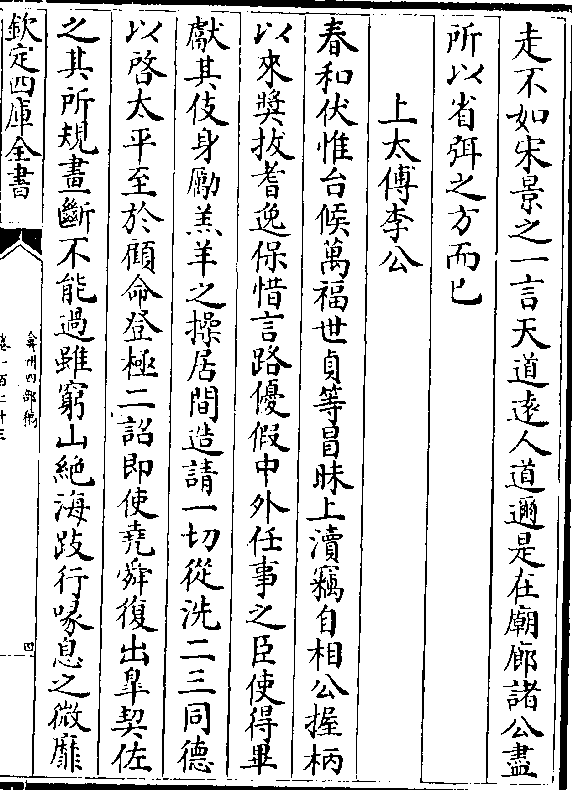 走不如宋景之一言天道逺人道邇是在廟廊諸公盡
所以省弭之方而已
上太傅李公
春和伏惟台候萬福世貞等昌昧上瀆竊自相公握柄
以來奬拔耆逸保惜言路優假中外任事之臣使得畢
獻其伎身勵羔羊之操居間造請一切從洗二三同德
以啓太平至於顧命登極二詔即使堯舜復出臯契佐
之其所規畫斷不能過雖窮山絶海跂行喙息之微靡
欽定四庫全書
弇州四部稿
卷一百二十三
四